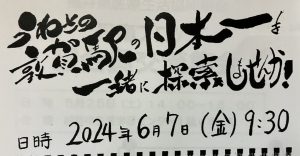 うわさの
敦賀駅の日本一を
一緒に探索しませんか!
日時 2024年6月7日(金)9:30